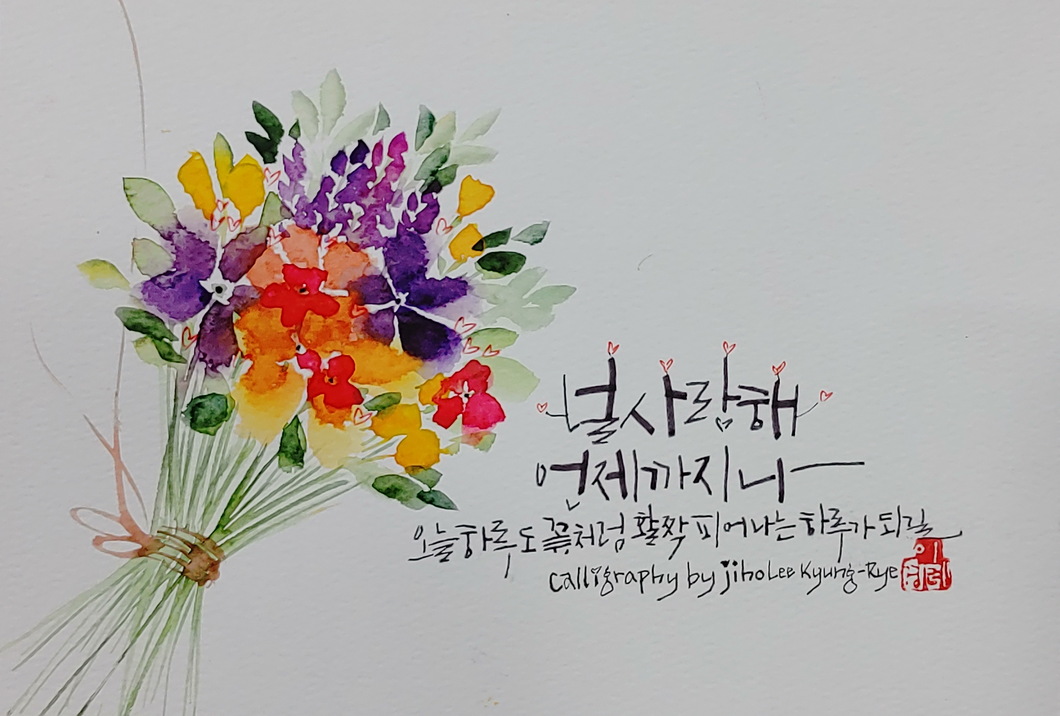 널사랑해
언제까지나
오늘하루도 꽃처럼 활짝 피어나는 하루가 되길
Calligraphy by jiho Lee Kyung-Rye
이경례